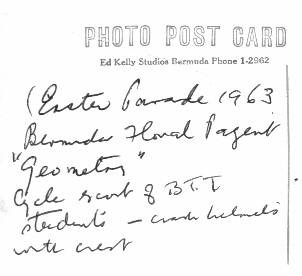 PHOTO POST CARD
Ed Kelly Studios Bermuda Phone 1-2962
(Easter Parade 1963
Bermuda Floral Pagent
"Geometry"
Cycle scout of BTI
students – crash helmets
with crest